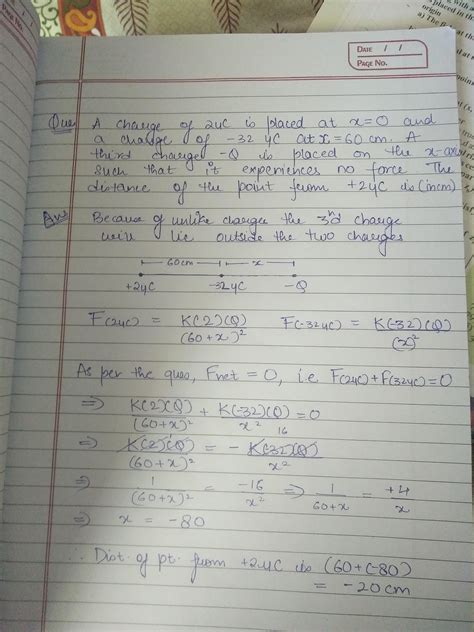 DATE / /
PAGE NO.
Ques A charge of 2μC is placed at x=0 and
a charge of -32 μC at x=60 cm. A
third charge -Q is placed on the x-axis
such that it experiences no force. The
distance of the point from +2μC is (in cm)
Ans Because of unlike charges the 3rd charge
will lie outside the two charges
60cm x
+2μC -32μC -Q
F(2μC) = K(2)(Q) / (60+x)² F(-32μC) = K(-32)(Q) / (x)²
As per the ques, Fnet = 0, i.e F(2μC)+F(32μC)=0
⇒ K(2)(Q) / (60+x)² + K(-32)(Q) / x² = 0
⇒ K(2)(Q) / (60+x)² = - K(32)(Q) / x² 1 16
⇒ 1 / (60+x)² = -16 / x² ⇒ 1 / 60+x = +4 / x
⇒ x = -80
∴ Dist. of pt. from +2μC is (60+(-80)
= -20cm